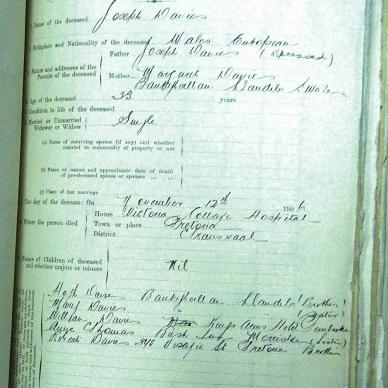 Name of the deceased Joseph Davies
Birthplace and Nationality of the deceased Wales European
Names and addresses of the Parents of the deceased
Father Joseph Davies (Deceased)
Mother Margaret Davies
Llandilo S Wales
Age of the deceased 33 years
Condition in life of the deceased
Married or Unmarried Widower or Widow Single
(a) Name of surviving spouse (if any) and whether married in community of property or not
(b) Name or names and approximate date of death of pre-deceased spouse or spouses
(c) Place of last marriage
The day of the decease: On November 12th 1906
Where the person died
House Victoria Cottage Hospital
Town or place Pretoria
District Transvaal
Names of Children of deceased and whether majors or minors Nil
Llandilo (Brother)
Mary Davies (Sister)
William Davies Kings Arms Hotel
Thomas Morriston (Sister)
Davies St Pretoria Brother